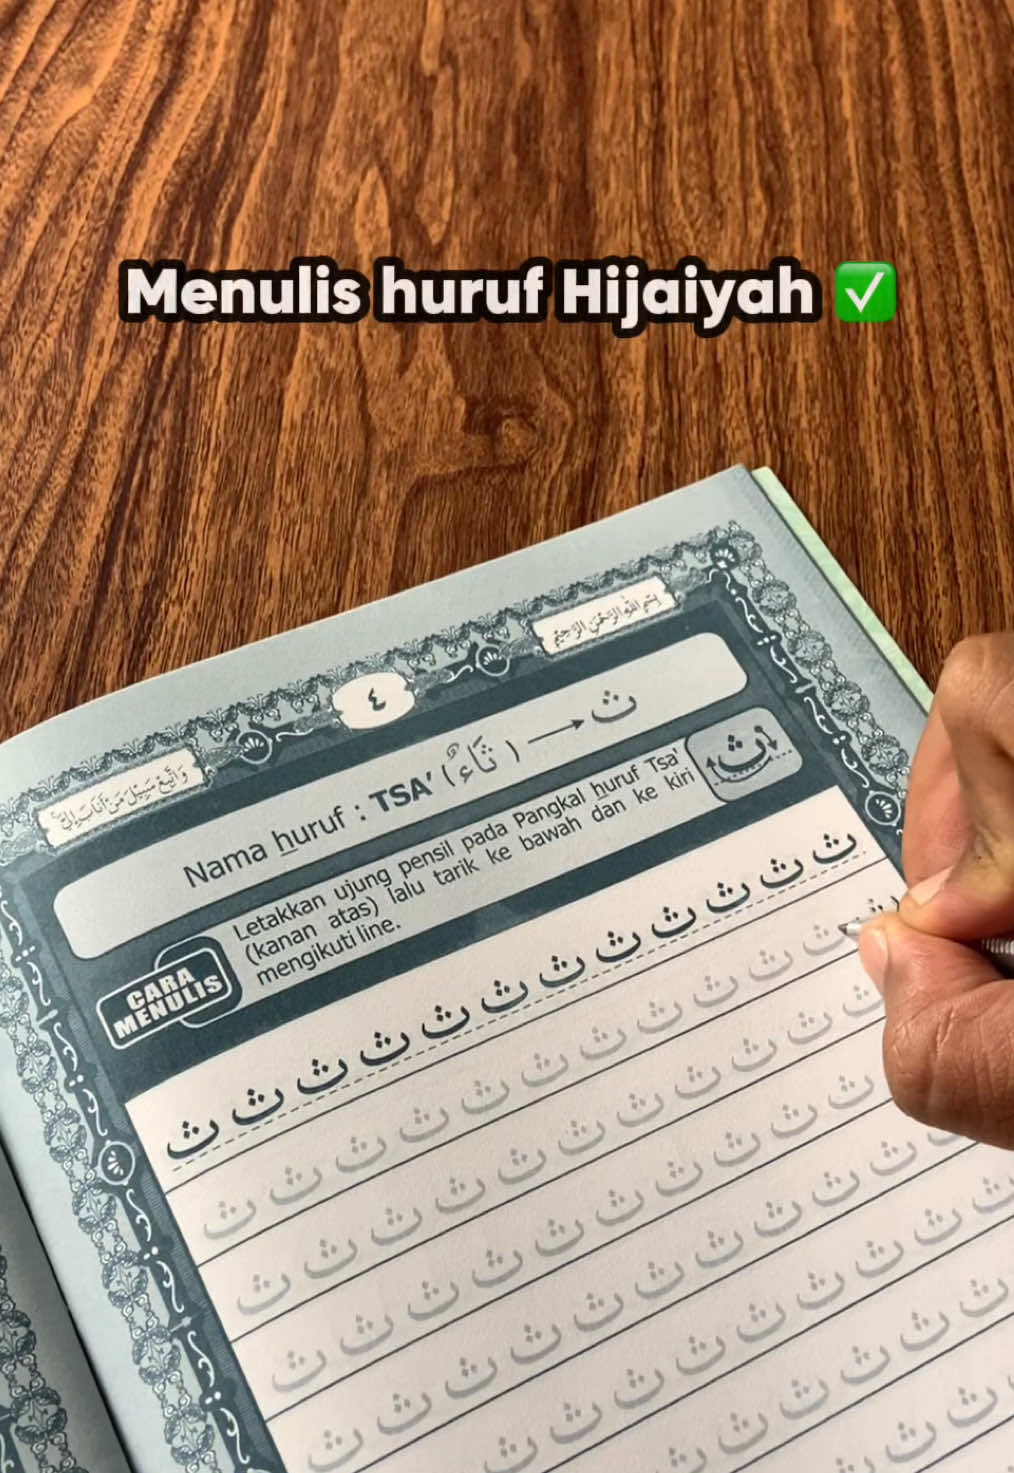 Menulis huruf Hijaiyah ✅
بِسْمِ اللهِ الرَّحْمٰنِ الرَّحِيْمِ
٤
وَاتَّبِعْ سَبِيْلَ مَنْ اَنَابَ اِلَيَّ
Nama huruf : TSA' ( ثَاءٌ ) → ث
CARA
MENULIS
Letakkan ujung pensil pada Pangkal huruf Tsa'
(kanan atas) lalu tarik ke bawah dan ke kiri
mengikuti line.
ث
ث ث ث ث ث ث ث ث ث ث ث ث
ث ث ث ث ث ث ث ث ث ث ث ث
ث ث ث ث ث ث ث ث ث ث ث
ث ث ث ث ث ث ث ث ث
ث ث ث ث ث ث ث ث ث ث ث
ث ث ث ث ث ث ث ث ث ث ث
ث ث ث ث ث ث ث ث ث
ث ث ث